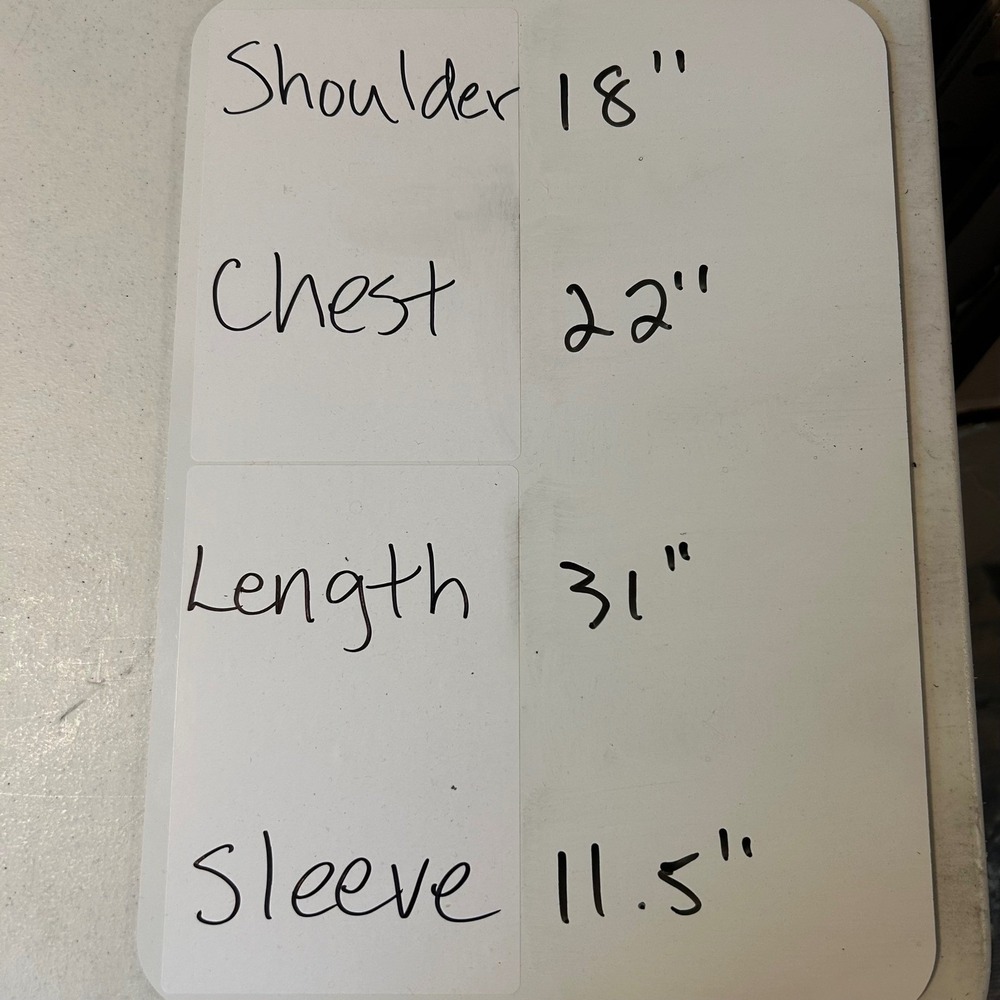 Shoulder 18"
Chest 22"
Length 31"
Sleeve 11.5"